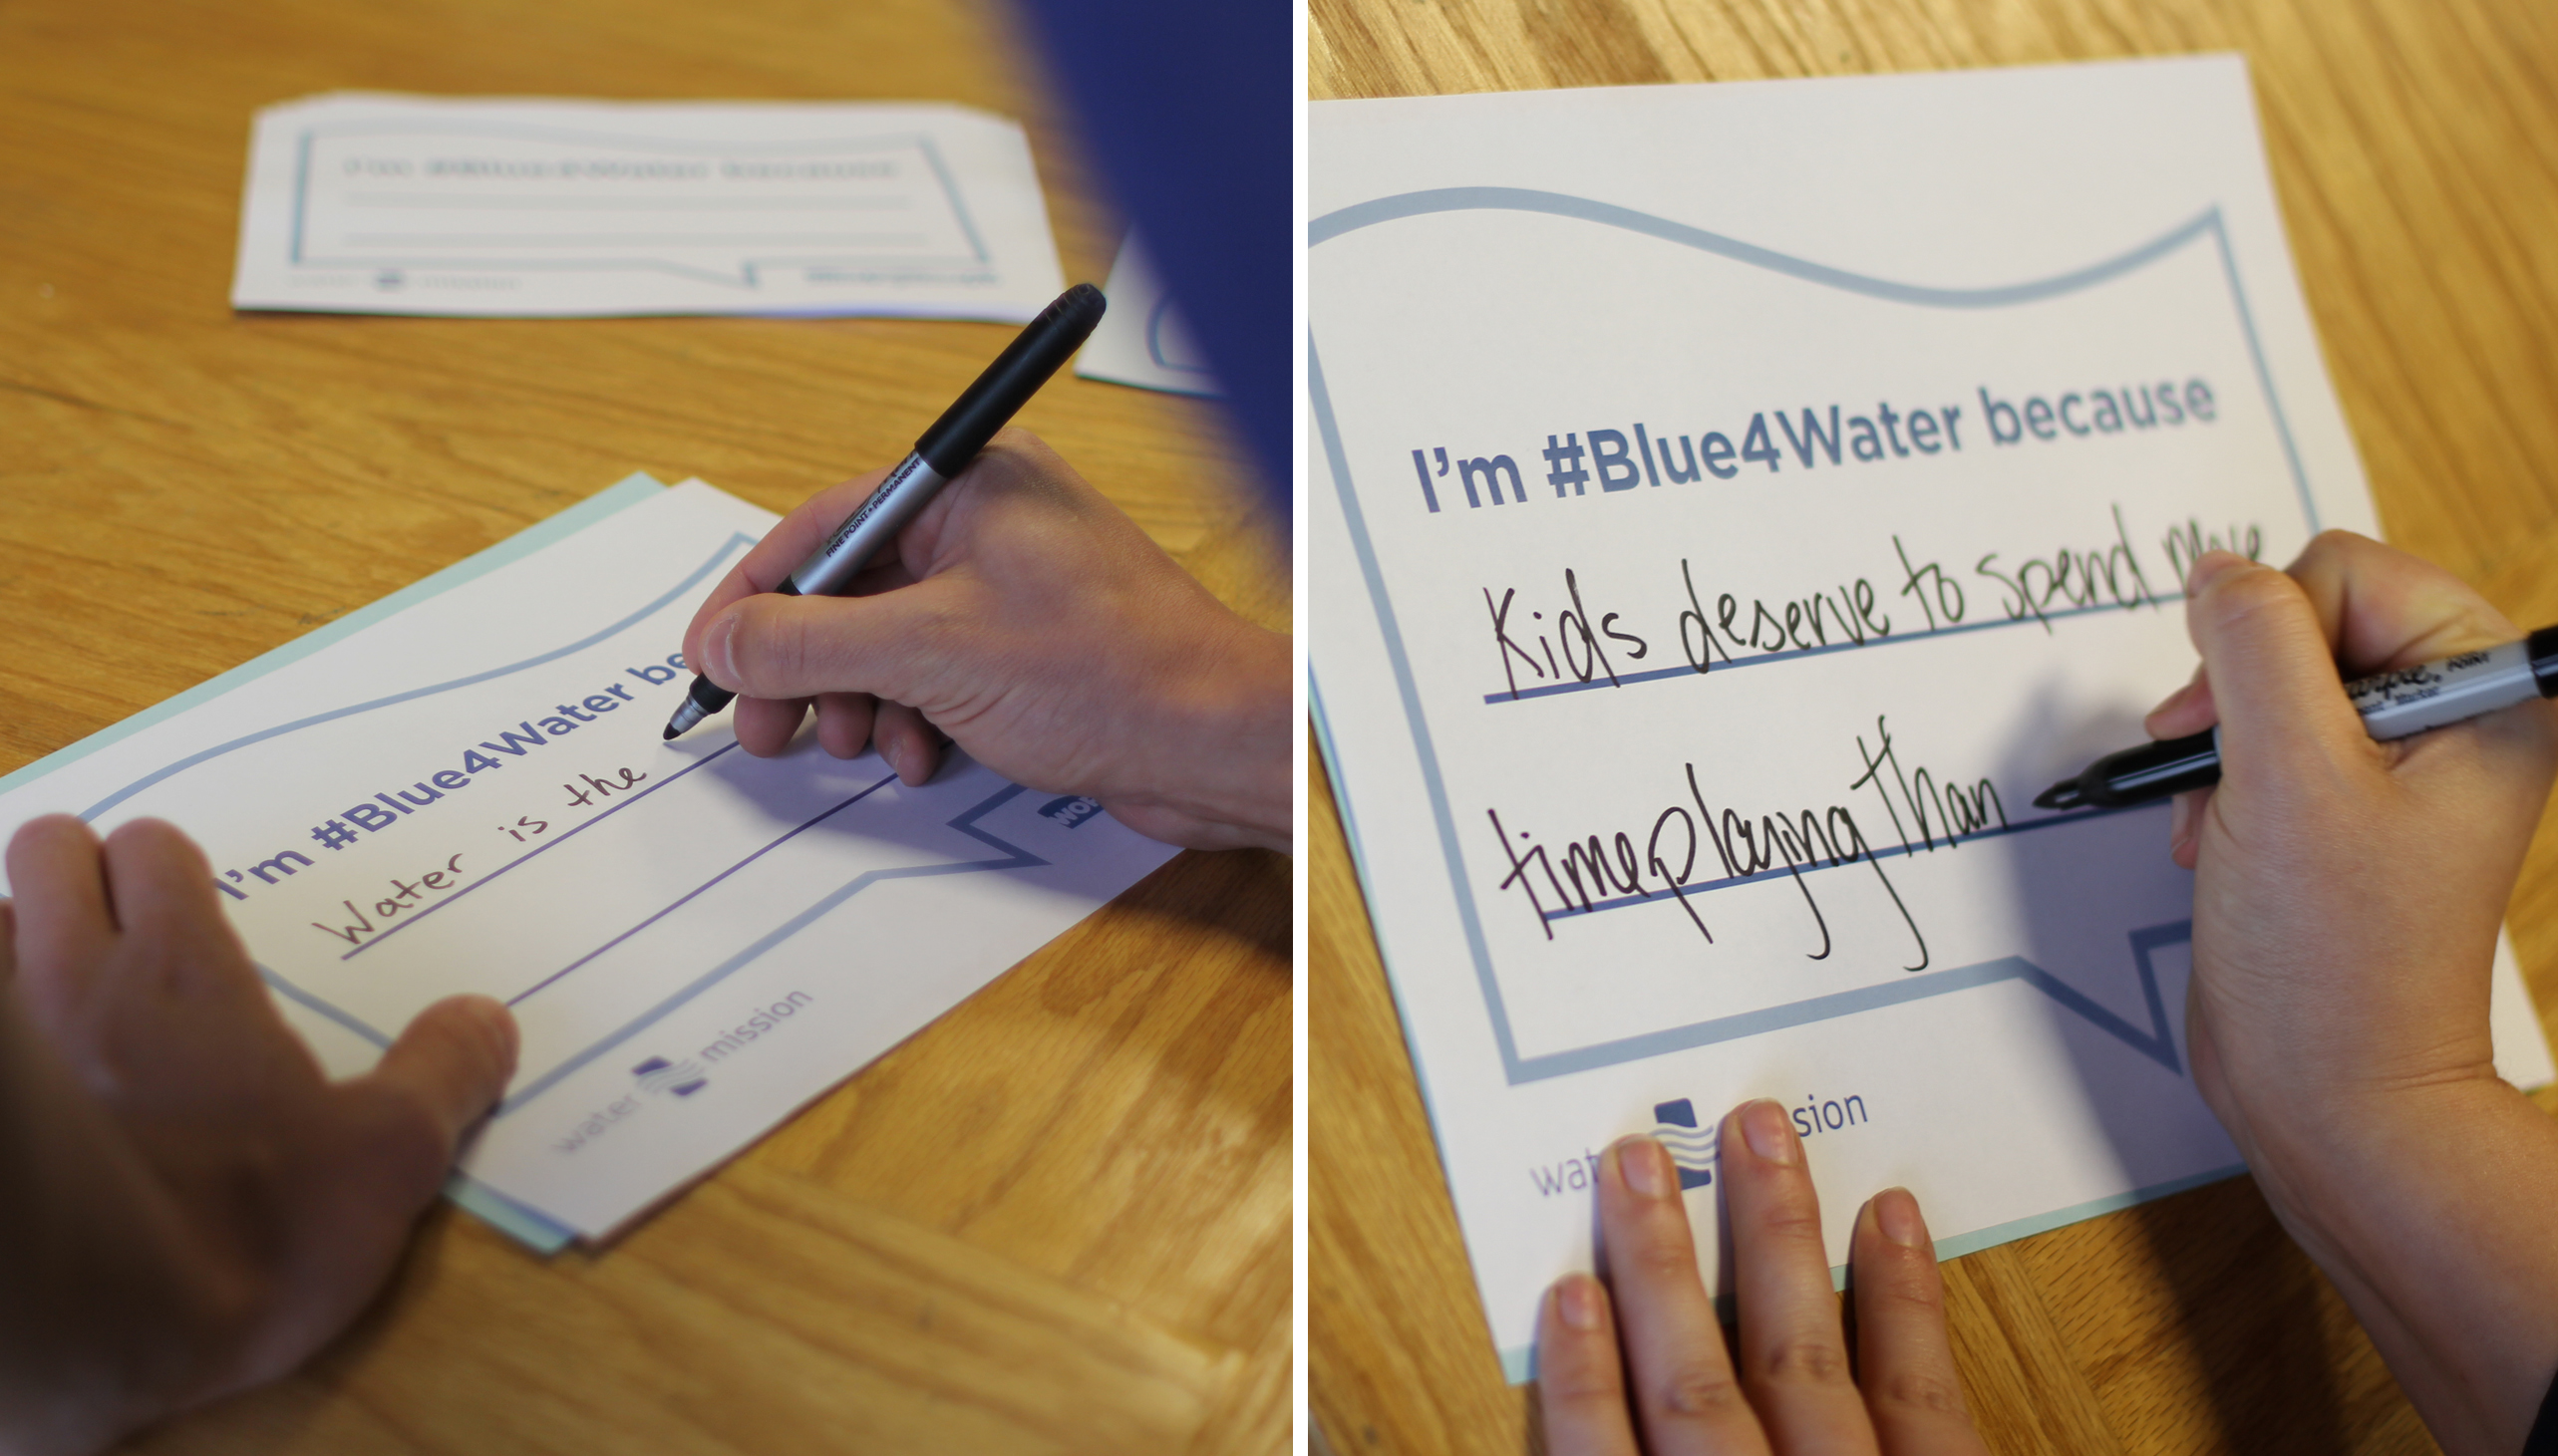 I'm #Blue4Water be
Water is the
water mission
FINE POINT • PERMANENT
I'm #Blue4Water because
Kids deserve to spend more
time playing than
wat sion